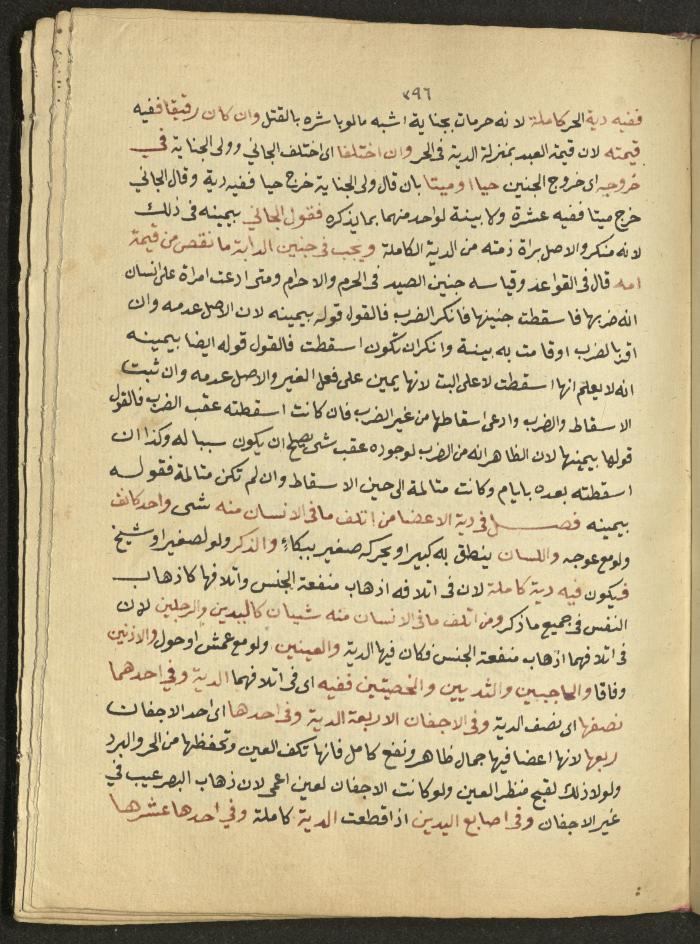 ٣٩٦
ففيه دية الحر كاملة لانه حر مات بجناية اشبه مالو باشره بالقتل وان كان رقيقا ففيه
قيمته لان قيمة العبد بمنزلة الدية فى الحر وان اختلفا اى اختلف الجانى وولى الجناية في
خروجه اى خروج الجنين حيا او ميتا بان قال ولى الجناية خرج حيا ففيه دية وقال الجانى
خرج ميتا ففيه عشرة ولا بينة لواحد منهما بما يذكره فقول الجانى بيمينه فى ذلك
لانه منكر والاصل براة ذمته من الدية الكاملة ويجب فى جنين الدابة ما نقص من قيمة
امه قال فى القواعد وقياسه جنين الصيد فى الحرم والاحرام ومتى ادعت امراة على انسان
انه ضربها فاسقطت جنينها فانكر الضرب فالقول قوله بيمينه لان الاصل عدمه وان
اقر بالضرب او قامت به بينة وانكر ان تكون اسقطت فالقول قوله ايضا بيمينه
انه لا يعلم انها اسقطت لا على البت لانها يمين على فعل الغير والاصل عدمه وان ثبت
الاسقاط والضرب وادعى اسقاطها من غير الضرب فان كانت اسقطته عقب الضرب فالقول
قولها بيمينها لان الظاهر انه من الضرب لوجوده عقب شى يصلح ان يكون سببا له وكذا ان
اسقطته بعده بايام وكانت متالمة الى حين الاسقاط وان لم تكن متالمة فقوله
بيمينه فصل فى دية الاعضا من اتلف ما فى الانسان منه شى واحد كانف
ولو مع عوجه واللسان ينطق به كبير او يحركه صغير ببكاء والذكر ولو لصغير او شيخ
فيكون فيه دية كاملة لان فى اتلافه اذهاب منفعة الجنس واتلافها كاذهاب
النفس فى جميع ما ذكر ومن اتلف ما فى الانسان منه شيان كاليدين والرجلين لان
فى اتلافهما اذهاب منفعة الجنس فكان فيها الدية والعينين ولو مع عمش او حول والاذنين
وفاقا والحاجبين والثديين والخصيتين ففيه اى فى اتلافهما الدية وفى احدهما
نصفها اى نصف الدية وفى الاجفان الاربعة الدية وفى احدها اى احد الاجفان
ربعها لانها اعضا فيها جمال ظاهر ونفع كامل فانها تكف العين وتحفظها من الحر والبرد
ولولا ذلك لقبح منظر العين ولو كانت الاجفان لعين اعمى لان ذهاب البصر عيب في
غير الاجفان وفى اصابع اليدين اذا قطعت الدية كاملة وفي احدها عشرها